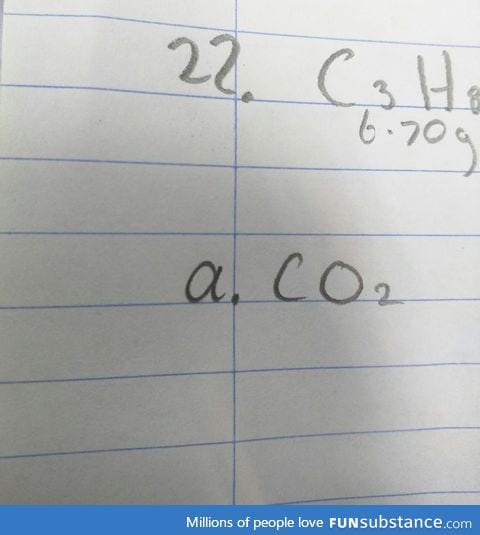 22. C3H8
6.70g
a. CO2
Millions of people love FUNsubstance.com